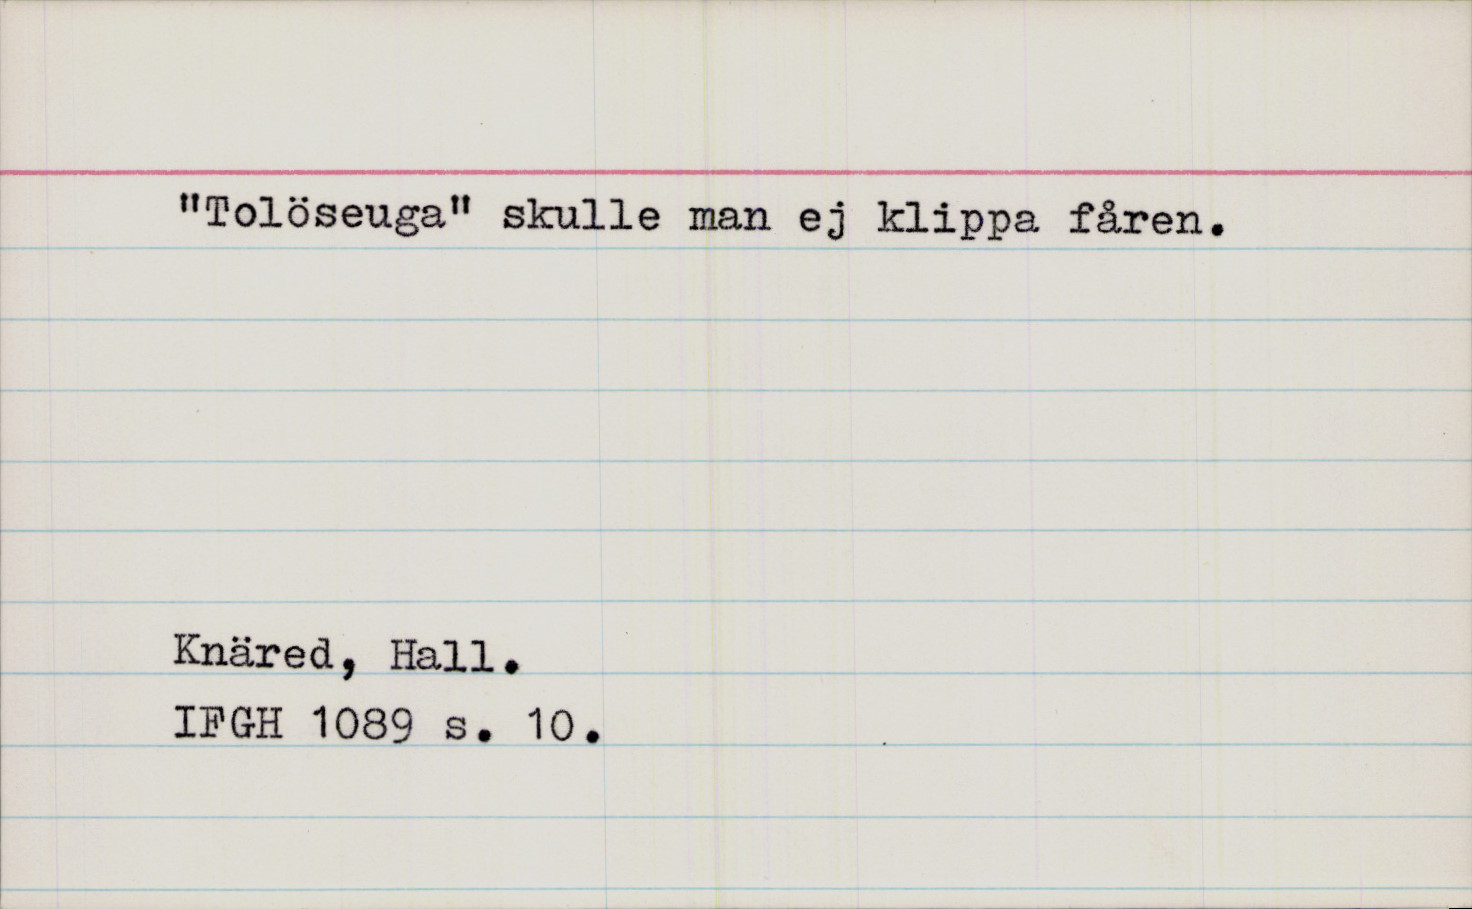 "Tolöseuga" skulle man ej klippa fåren.
Knäred, Hall.
IFGH 1089 s. 10.